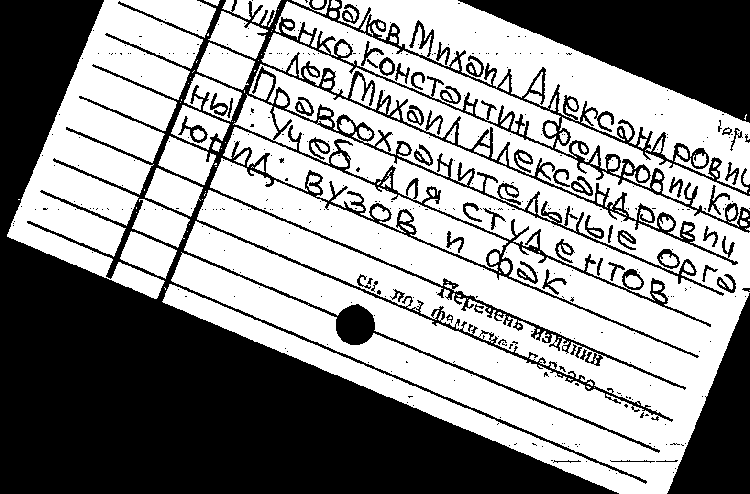 овалев, Михаил Александрович
гущенко, Константин Федорович, Ков
лев, Михаил Александрович.
Правоохранительные орга-
ны: Учеб. для студентов
юрид. вузов и фак.
Перечень издании
см. под фамилией первого автора